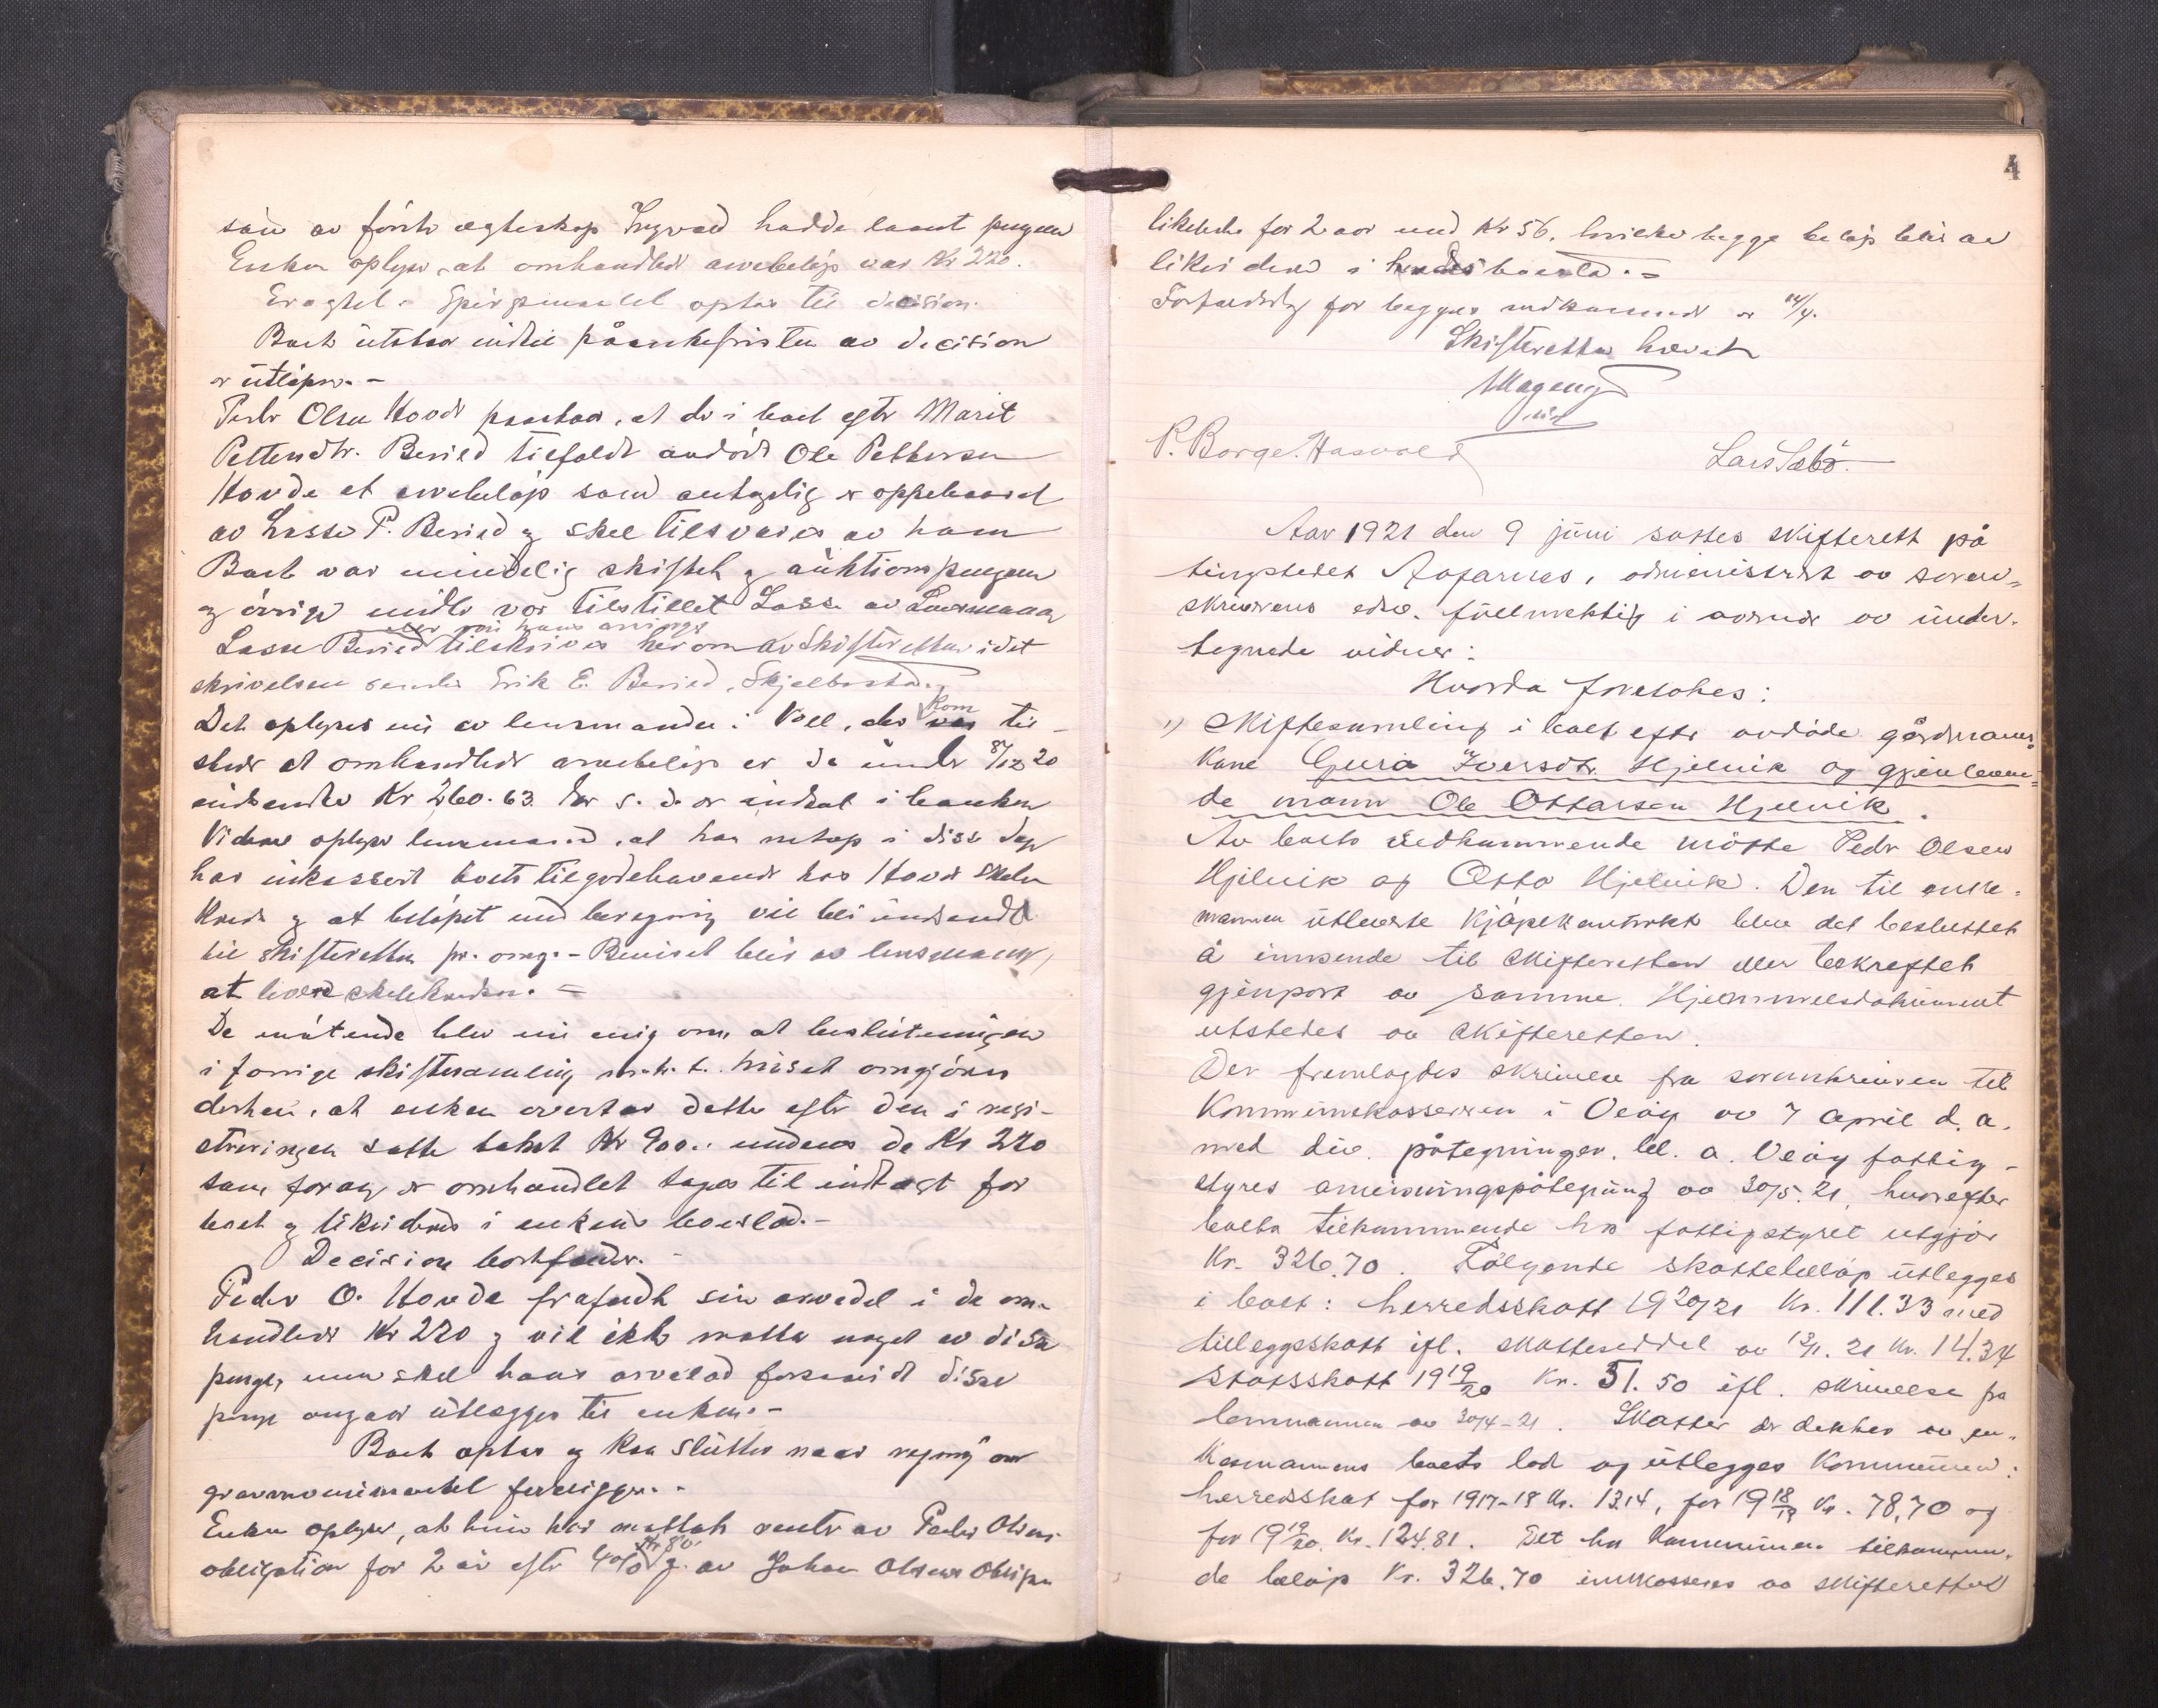 søn av første ægteskap Ingvald hadde laant pengene
Enken oplyser, at omhandlede arvebeløp var Kr 220.
Eragtet. Spørsmaalet optas til decision.
Boet utstaar indtil påankefristen av decision
er utløpen. -
Peder Olsen Hovde paastaar, at der i boet efter Marit
Pettersdtr. Beried tilfaldt avdøde Ole Pettersen
Hovde et arvebeløp som antagelig er oppebaaret
av Lasse P. Beried og skal tilsvares av ham
Boet var mindelig skiftet og auktionspengene
og øvrige midler var tilstillet Lasse av Lensmann
eller naa hans arvinge
Lasse Beried tilskrives herom av Skifteretten idet
skrivelsen sendes Erik E. Beried, Skjelbostad.
Det oplyses nu av lensmanden i Voll, der kom til
stede at omhandlede arvebeløp er da under 8/12 20
indsendte Kr 260.63. Der s. d. er indsat i banken
Videre oplyser lensmand, at han netop i disse dage
har inkassert boets tilgodehavende hos Hovde Skole
kreds og at beløpet med beregning vil bli indsendt
til skifteretten pr. omg. - Beviset blir av lensmann,
at levere skolekredsen. =
De møtende blev nu enig om, at beslutningen
i forrige skiftesamling m.h.t. huset omgjøres
derhen, at enken overtar dette efter den i regi-
streringen satte takst Kr 900.. medens de Kr 220
som foran er omhandlet tages til indtægt for
boet og likvideres i enkens boeslod. -
Decision bortfalder. -
Peder O. Hovde frafaldt sin arvedel i de om-
handlede Kr 220 og vil ikke motta noget av disse
penge, men skal hans arvelod forsaavidt disse
penge angaar utlægges til enken. -
Boet optas og kan sluttes naar regning over
gravmonumentet foreligger. -
Enken oplyser, at hun har mottat rente av Peder Olsens
obligation for 2 år efter 4% Kr 80. og av Johan Olsens Obligation
4
likeledes for 2 aar med Kr 56. hvilke begge beløp blir at
likvidere i hendes boeslod. =
Forfaldsdag for begges vedkommende er 14/4.
Skifteretten hævet
Mageng
P. Borge. Hasvold
Lars Sæbø.
Aar 1921 den 9 juni sattes skifterett på
tingstedet Aafarnes, administrert av soren-
skriverens edsv. fullmektig i avundr av under-
tegnede vidner:
Hvorda foretokes:
1) Skiftesamling i boet efter avdøde gårdmanns
kone Guri Iversdtr. Hjelvik og gjenleven-
de mann Ole Ottarsen Hjelvik.
Av boets vedkommende møtte Peder Olsen
Hjelvik og Otto Hjelvik. Den til enke-
mannen utleverte kjøpekontrakt blev det besluttet
å innsende til skifteretten eller bekreftet
gjenpart av samme. Hjemmelsdokument
utstedes av skifteretten.
Der fremlagdes skrivelse fra sorenskriveren til
kommunekasseren i Veøy av 7 april d. a.
med div. påtegninger, bl. a. Veøy fattig-
styres anvisningspåtegning av 30/5. 21, hvorefter
boets tilkommende hos fattigstyret utgjør
Kr. 326.70. Følgende skattebeløp utlegges
i boet: herredsskatt 1920/21 Kr. 111.33 med
tilleggsskatt ifl. skatteseddel av 12/1. 21 Kr. 14.34
Statsskatt 1919/20 Kr. 51.50 ifl. skrivelse fra
lensmannen av 30/4-21. Skatter der dekkes av en-
kesmannens boets lod og utlegges kommunen:
herredsskat for 1917-18 Kr. 13.14, for 1918/19 Kr. 78,70 og
for 1919/20. Kr. 124.81. Det hos kommunen tilkommen-
de beløp Kr. 326.70 innkasseres av skifteretten